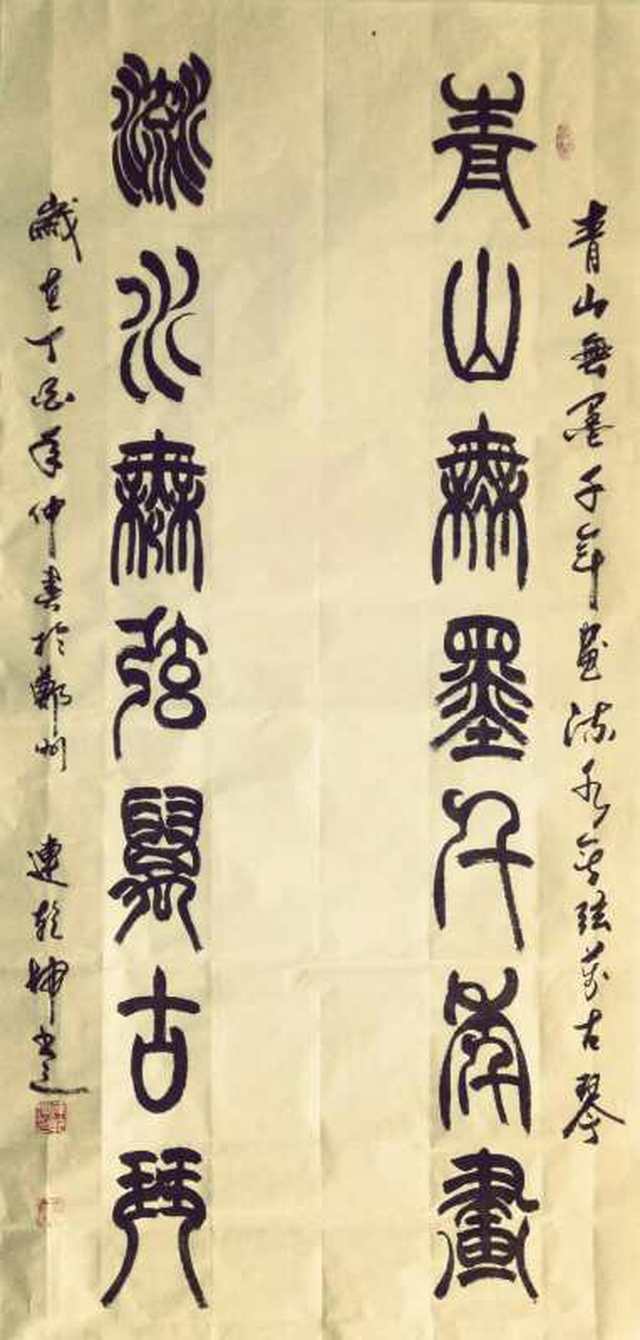 青山無墨千年畫流水無弦萬古琴
青山無墨千年畫
流水無弦萬古琴
歲在丁酉年仲春於鄭州 連乾書